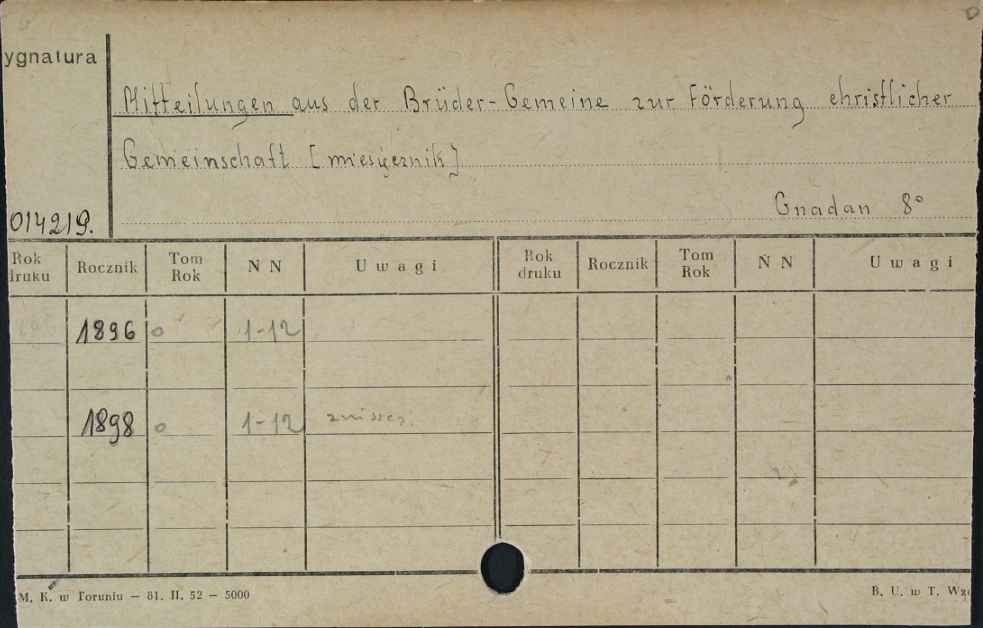 ygnatura
Mitteilungen aus der Brüder-Gemeine zur Förderung christlicher
Gemeinschaft [miesięcznik]
Gnadau 8°
014219.
Rok druku Rocznik Tom Rok N N Uwagi Rok druku Rocznik Tom Rok N N Uwagi
1896 0 1-12
1898 0 1-12 zniszcz.
M. K. w Toruniu — 81. II. 52 — 5000 B. U. w T. Wz